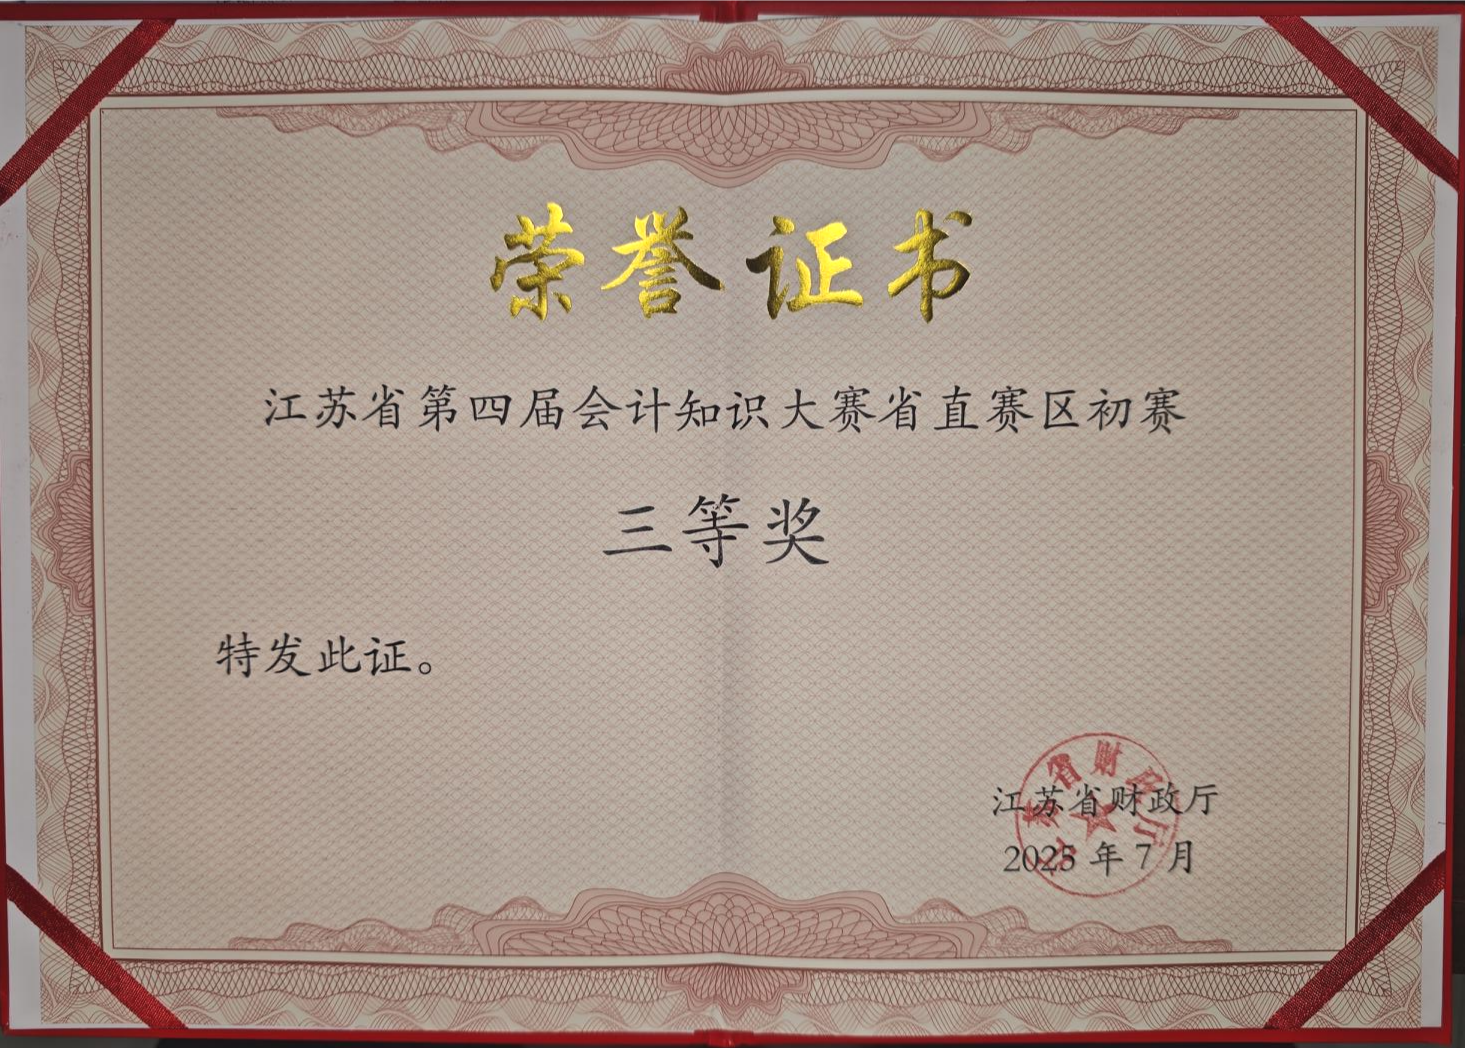 荣誉证书
江苏省第四届会计知识大赛省直赛区初赛
三等奖
特发此证。
江苏省财政厅
2025 年 7 月
江苏省财政厅